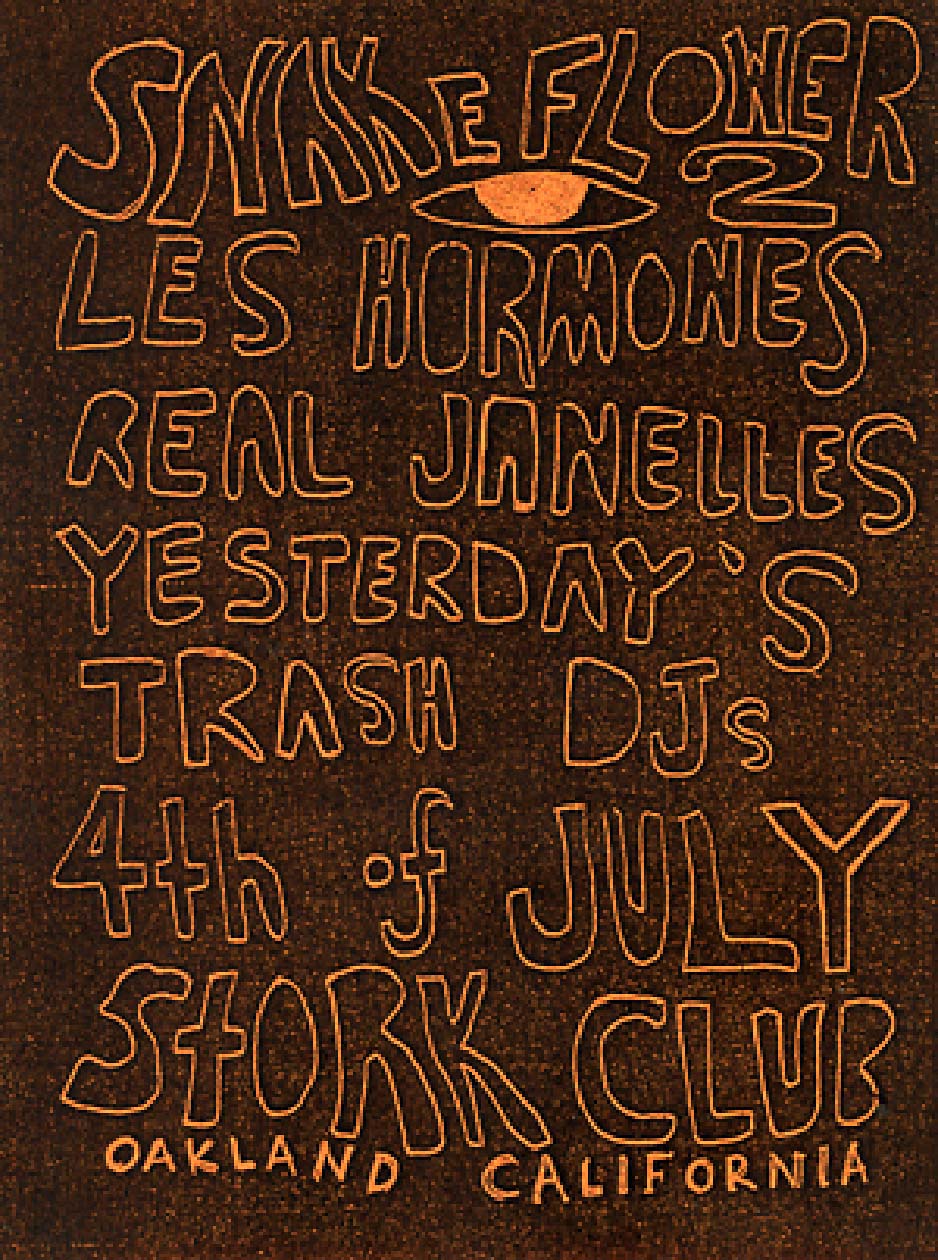 SNAKE FLOWER
2
LES HORMONES
REAL JANELLES
YESTERDAY'S
TRASH DJs
4th of JULY
StORK CLUB
OAKLAND CALIFORNIA